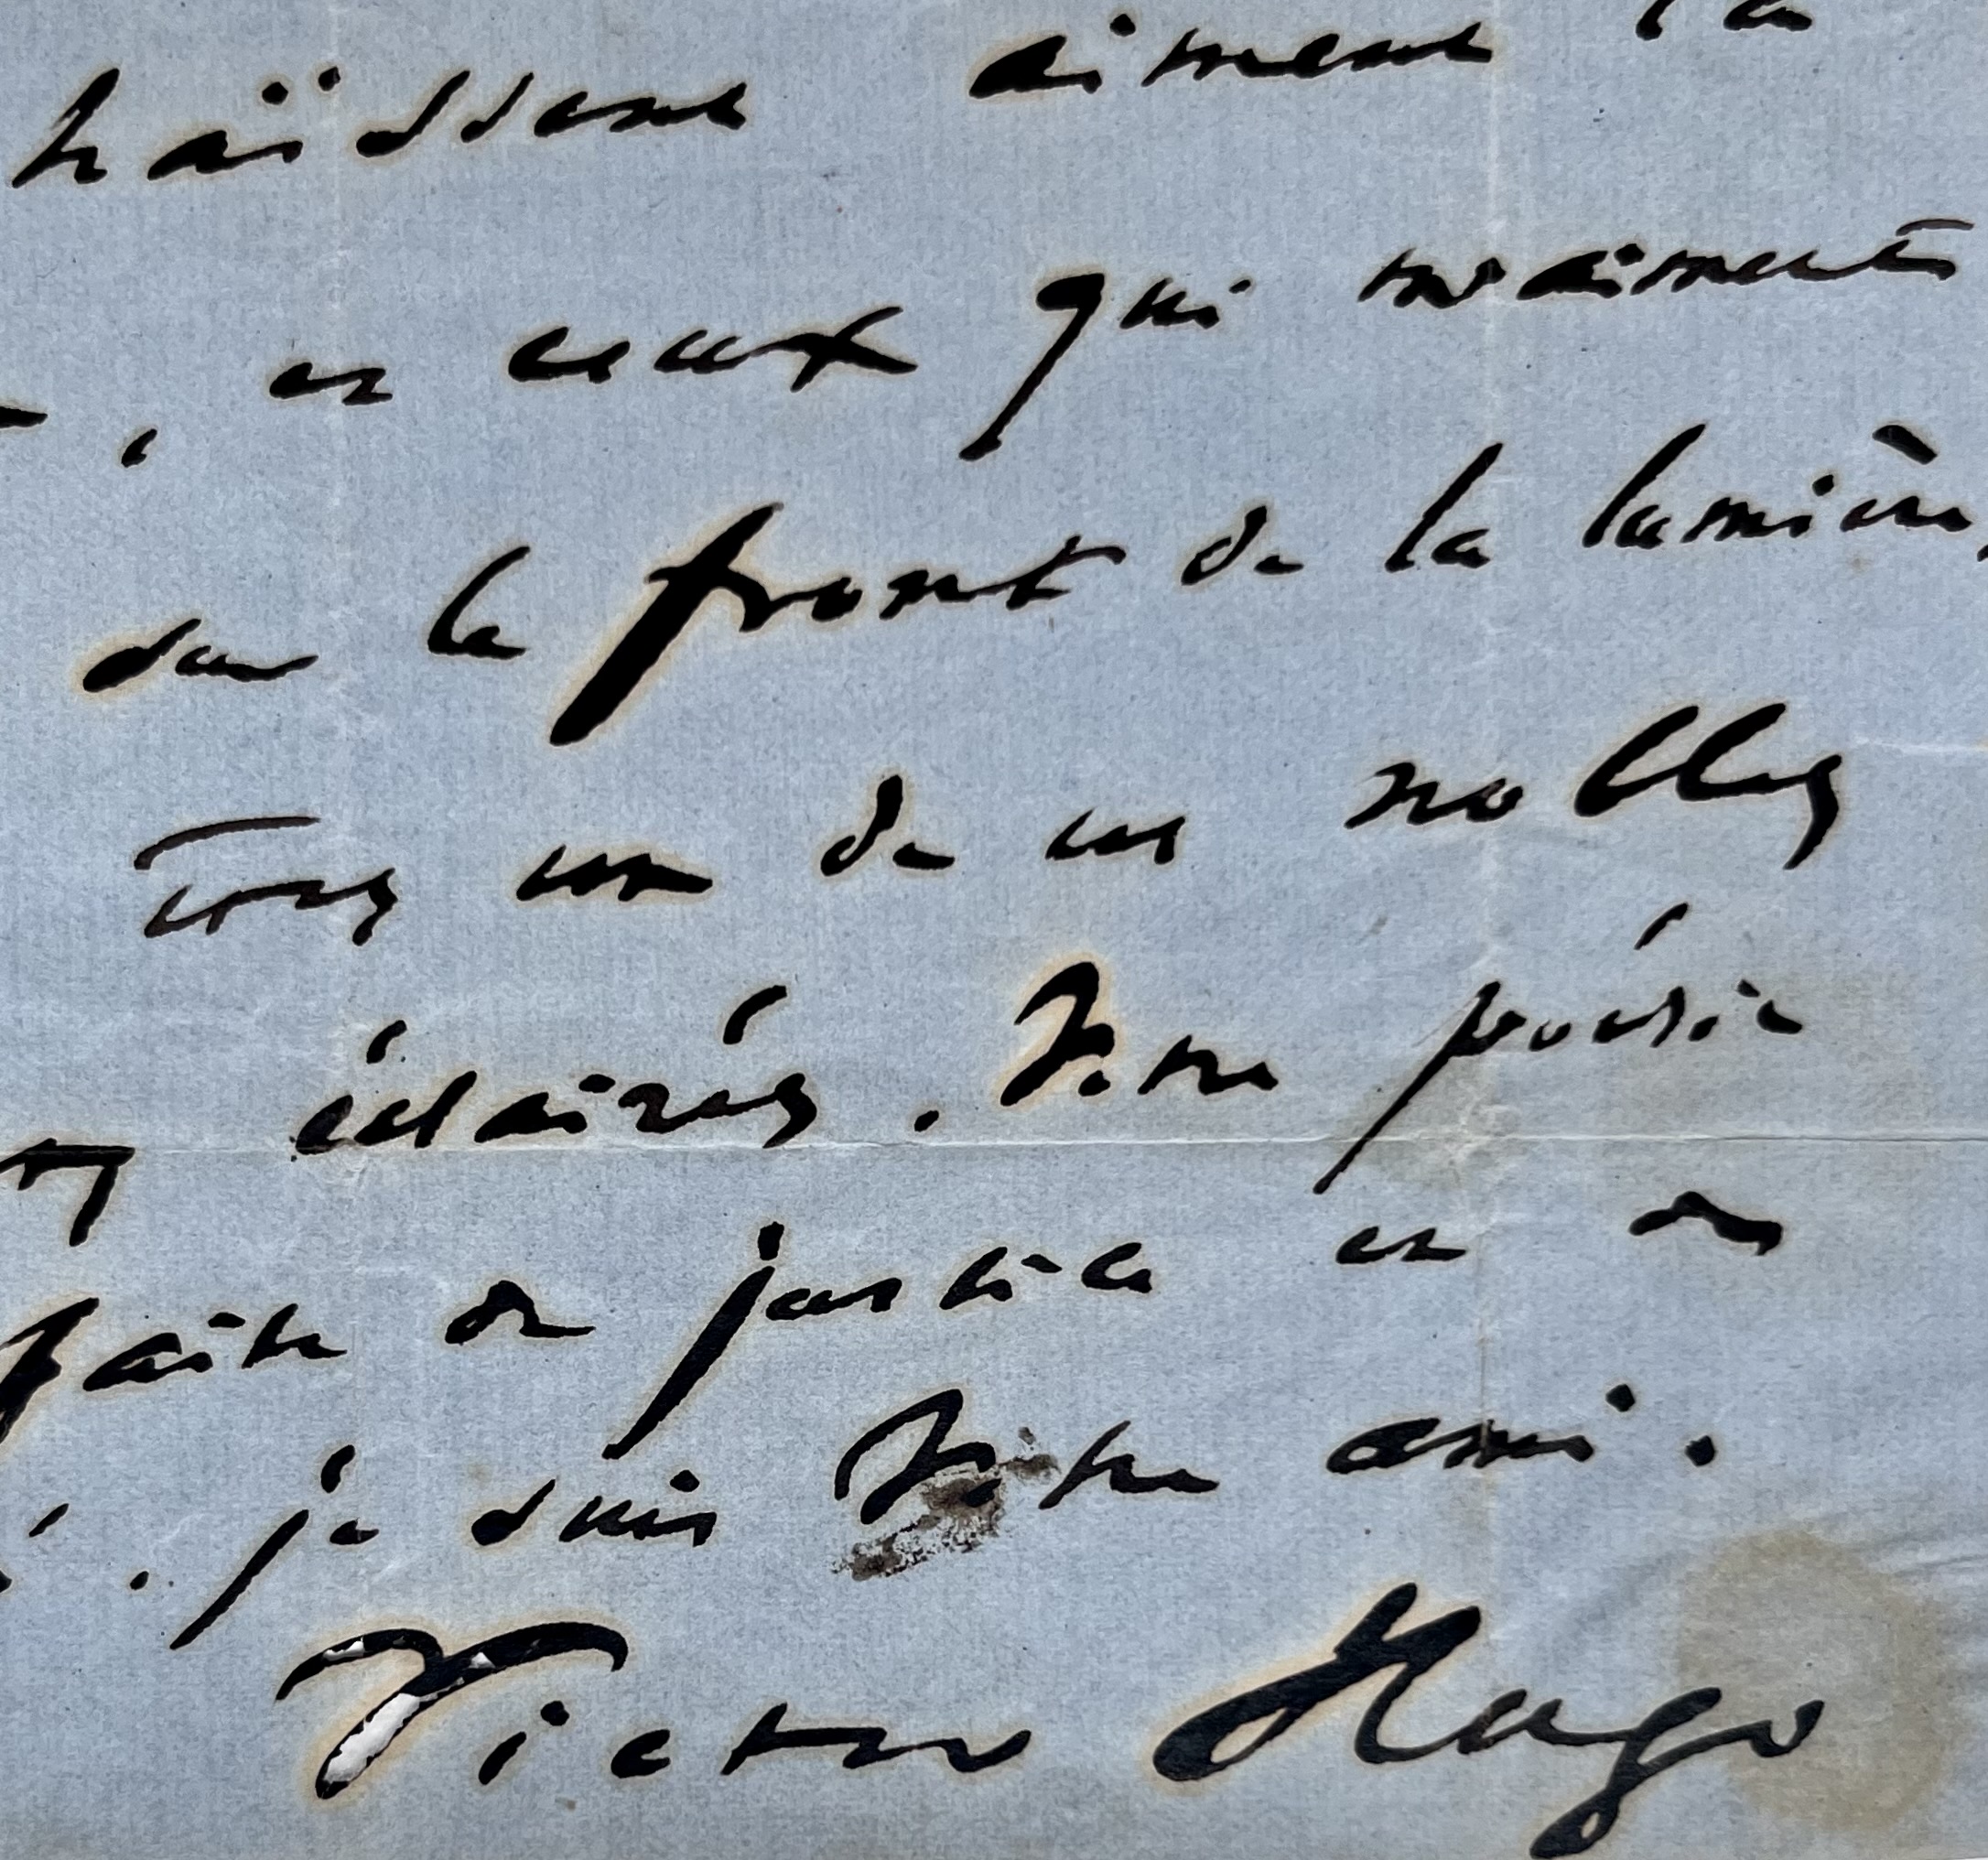 haïssent aiment la
, et ceux qui m'aiment
sur le front de la lumière,
êtes un de ces nobles
éclairés. Votre poésie
faite de justice et de
. je suis votre ami.
Victor Hugo